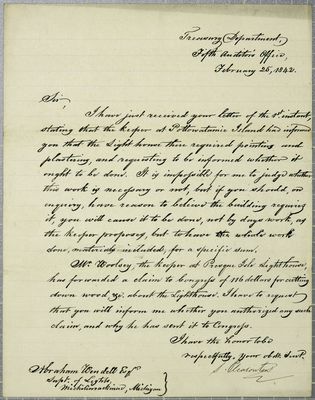 Treasury Department,
Fifth Auditor's Office,
February 25, 1842.
Sir,
I have just received your letter of the instant,
stating that the keeper at Pottowatamie Island had informed
you that the Light house there required pointing and
plastering, and requesting to be informed whether it
ought to be done. It is impossible for me to judge whether
this work is necessary or not, but if you should, on
inquiry, have reason to believe the building requires
it, you will cause it to be done, not by days work, as
the keeper proposes, but to have the whole work
done, materials included, for a specific sum.
Mr. Woolsey, the keeper at Presque Isle Lighthouse,
has forwarded a claim to Congress of 116 dollars for cutting
down wood &c. about the Lighthouse. I have to request
that you will inform me whether you authorized any such
claim, and why he has sent it to Congress.
I have the honor to be
respectfully, your obdt. Servt.
S. Pleasonton
Abraham Wendell Esqr.
Supt. of Lights,
Michilimackinac, Michigan